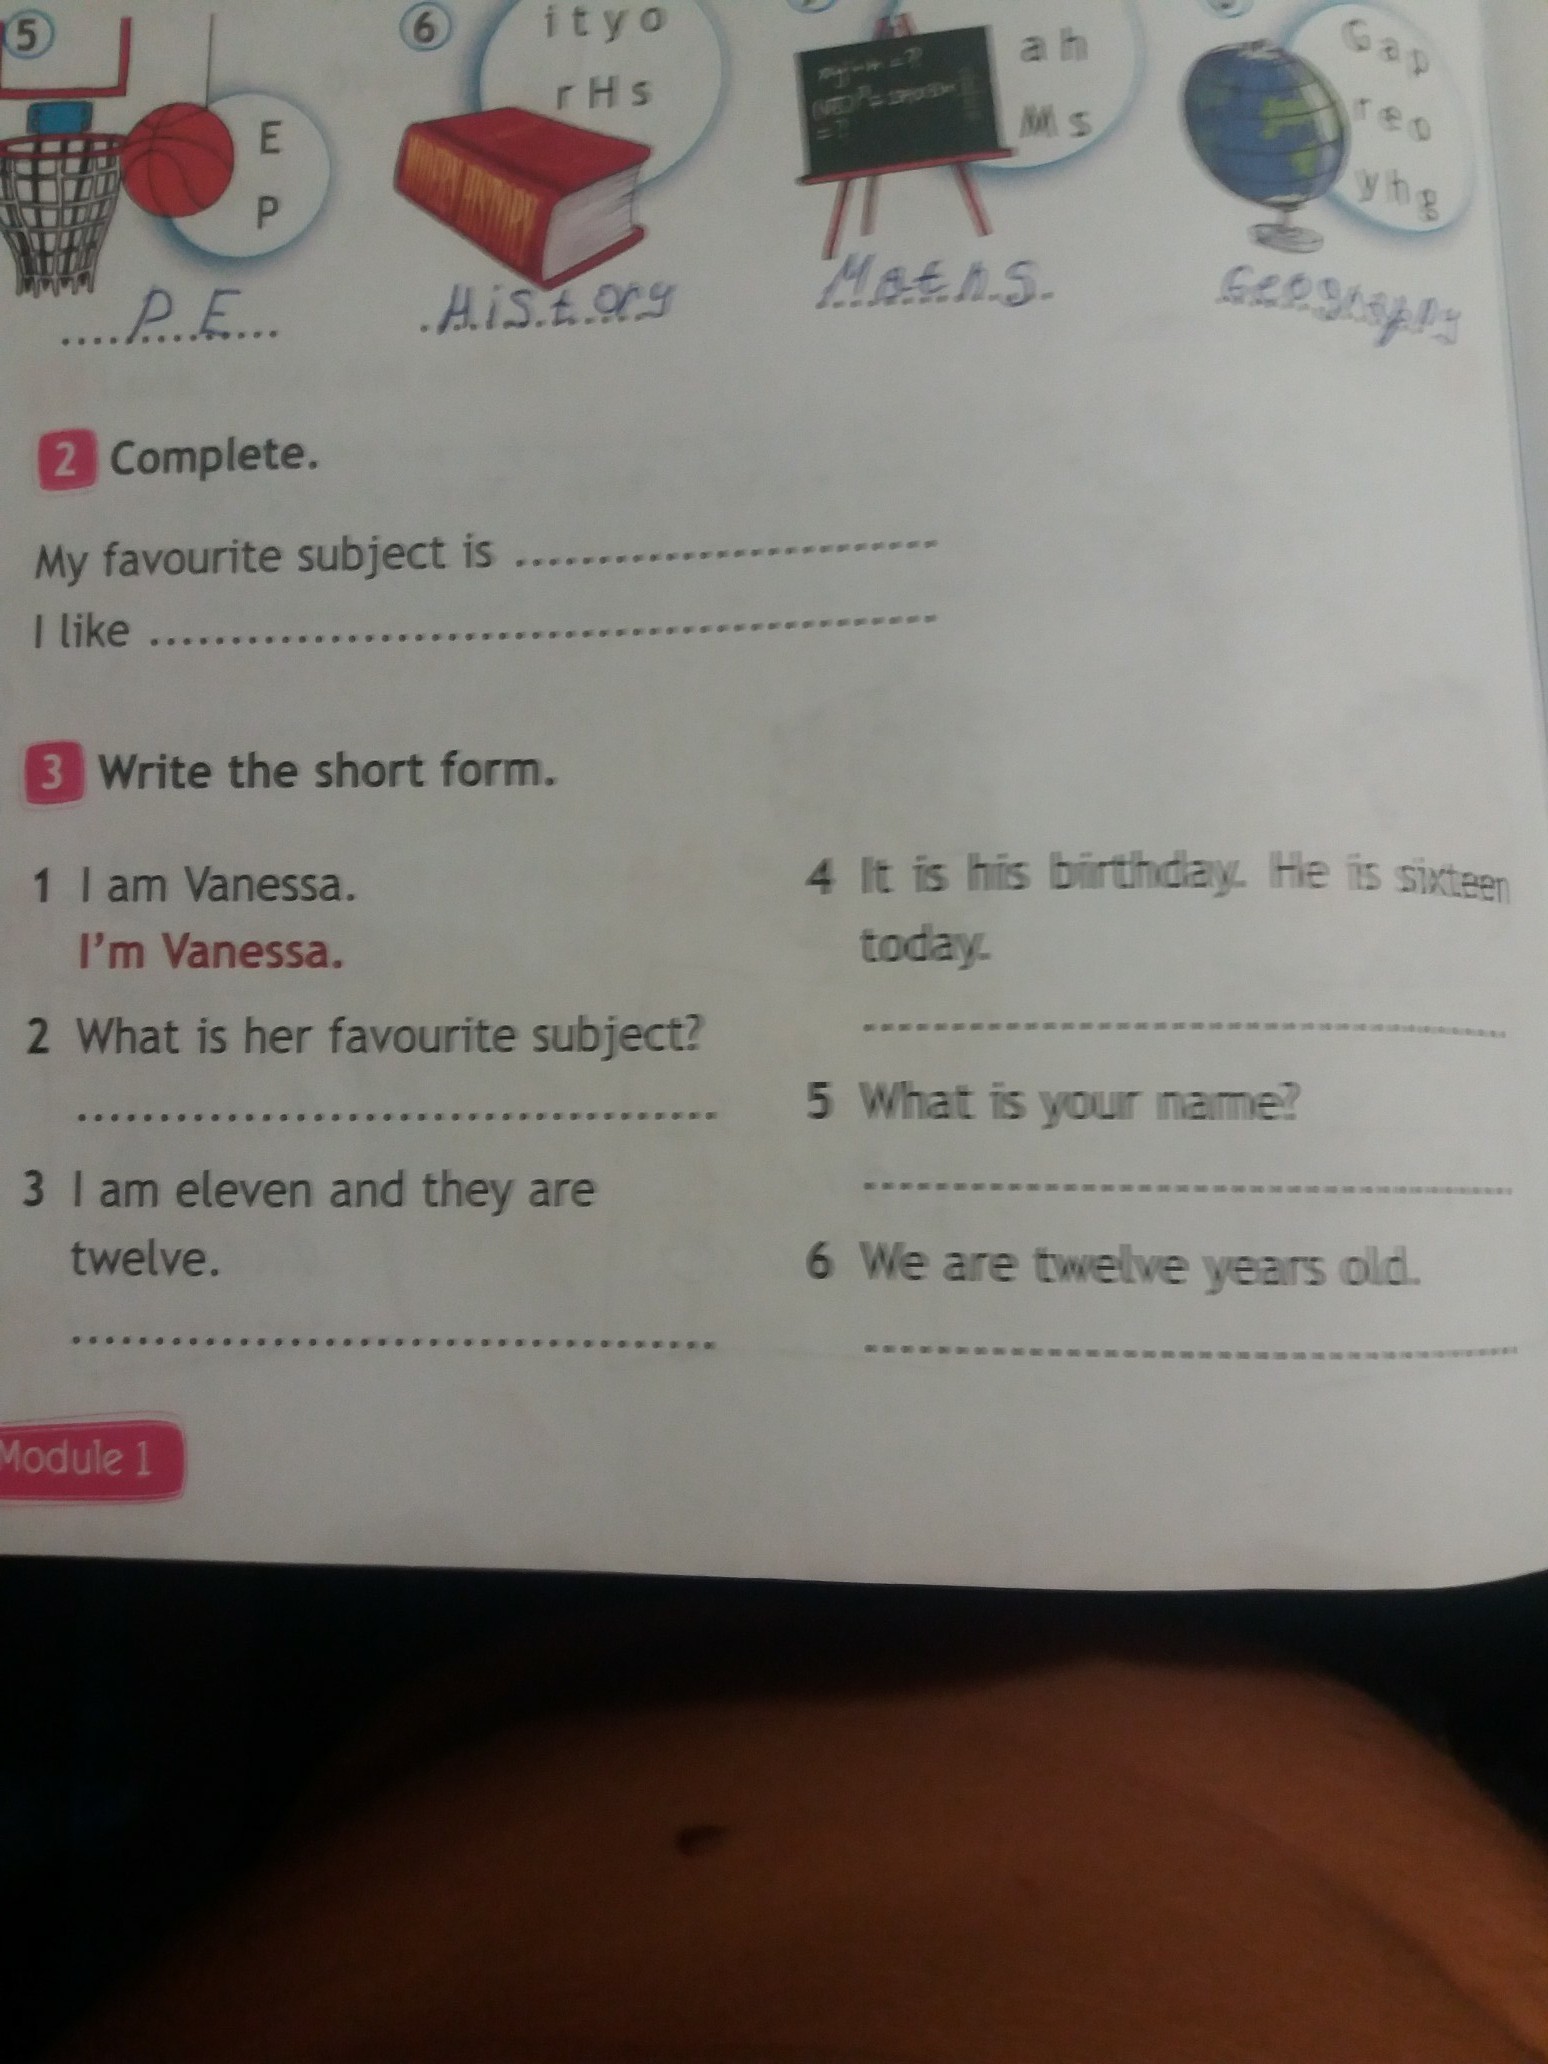 5
6
i t y o
r H s
a h
M s
G a p
r e o
y h g
E
P
HISTORY
P E
History
Maths
Geography
2 Complete.
My favourite subject is
I like
3 Write the short form.
1 I am Vanessa.
I'm Vanessa.
2 What is her favourite subject?
3 I am eleven and they are
twelve.
4 It is his birthday. He is sixteen
today.
5 What is your name?
6 We are twelve years old.
Module 1